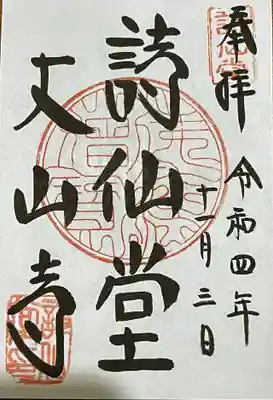 奉拝
令和四年
十一月三日
詩仙堂
丈山寺